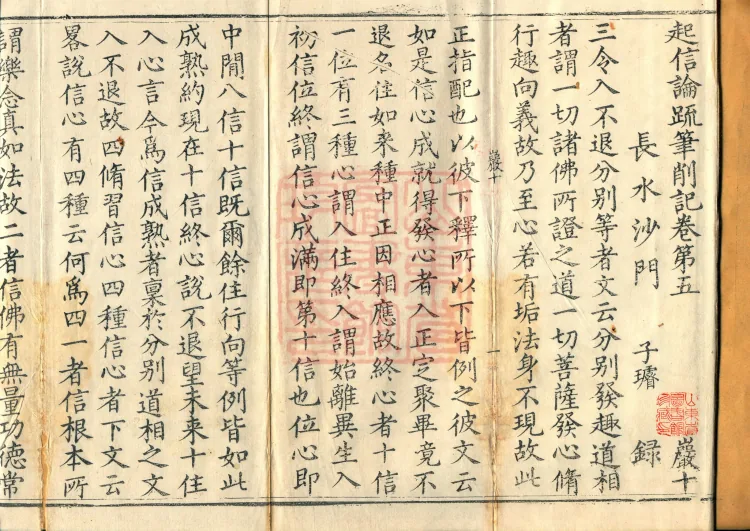 起信論疏筆削記卷第五　巖十
長水沙門　子璿　録
三令入不退分别等者文云分别發趣道相
者謂一切諸佛所證之道一切菩薩發心脩
行趣向義故乃至心若有垢法身不現故此
巖十　一
正指配也以彼下釋所以下皆例之彼文云
如是信心成就得發心者入正定聚畢竟不
退名住如來種中正因相應故終心者十信
一位有三種心謂入住終入謂始離異生入
初信位終謂信心成滿即第十信也位心即
中間八信十信既爾餘住行向等例皆如此
成熟約現在十信終心說不退望未来十住
入心言今爲信成熟者稟於分别道相之文
入不退故四脩習信心四種信心者下文云
畧說信心有四種云何爲四一者信根本所
謂樂念真如法故二者信佛有無量功德常